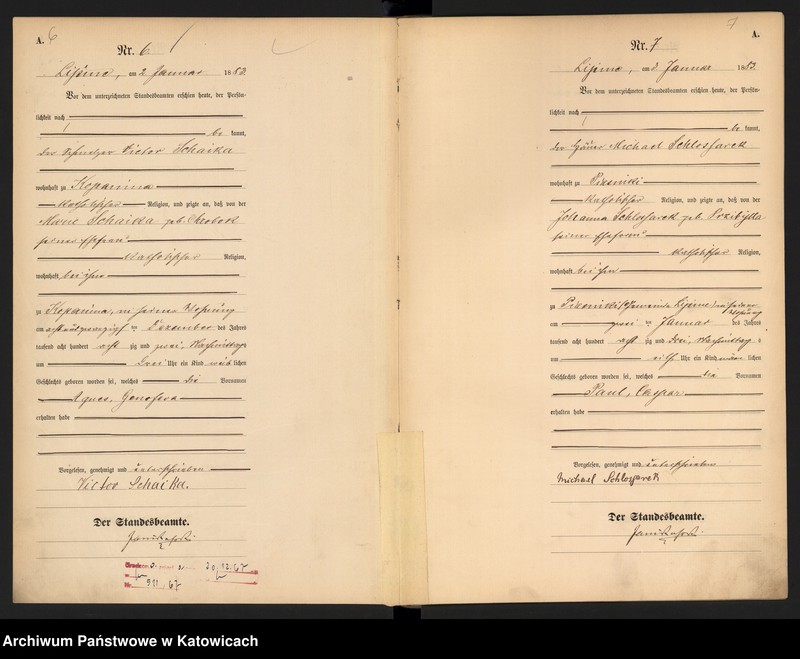 A. 6
Nr. 6.
Lissine, am 2 Januar 1883
Vor dem unterzeichneten Standesbeamten erschien heute, der Persön-
lichkeit nach
be kannt,
der Victor Schaika
wohnhaft zu Kopanina
katholischer Religion, und zeigte an, daß von der
Schaika geb.
seiner Ehefrau
katholischer Religion,
wohnhaft bei ihm
zu Kopanina, in seiner Wohnung
am acht und zwanzigsten Dezember des Jahres
tausend acht hundert acht zig und zwei, Nachmittags
um drei Uhr ein Kind weib lichen
Geschlechts geboren worden sei, welches die Vornamen
Agnes, Genofeva
erhalten habe
Vorgelesen, genehmigt und unterschrieben
Victor Schaika.
Der Standesbeamte.
30.12.67
511 67
7
A.
Nr. 7
am 3 Januar 1883.
Vor dem unterzeichneten Standesbeamten erschien heute, der Persön-
lichkeit nach
be kannt,
der Michael Schlossarek
wohnhaft zu
katholischer Religion, und zeigte an, daß von der
Johanna Schlossarek geb. Przibylla
seiner Ehefrau
katholischer Religion,
wohnhaft bei ihm
zu (Gemeinde in seiner Wohnung
am zwei ten Januar des Jahres
tausend acht hundert acht zig und drei, Nachmittag s
um elf Uhr ein Kind männ lichen
Geschlechts geboren worden sei, welches die Vornamen
Paul, Caspar
erhalten habe
Vorgelesen, genehmigt und unterschrieben
Michael Schlossarek
Der Standesbeamte.
Archiwum Państwowe w Katowicach